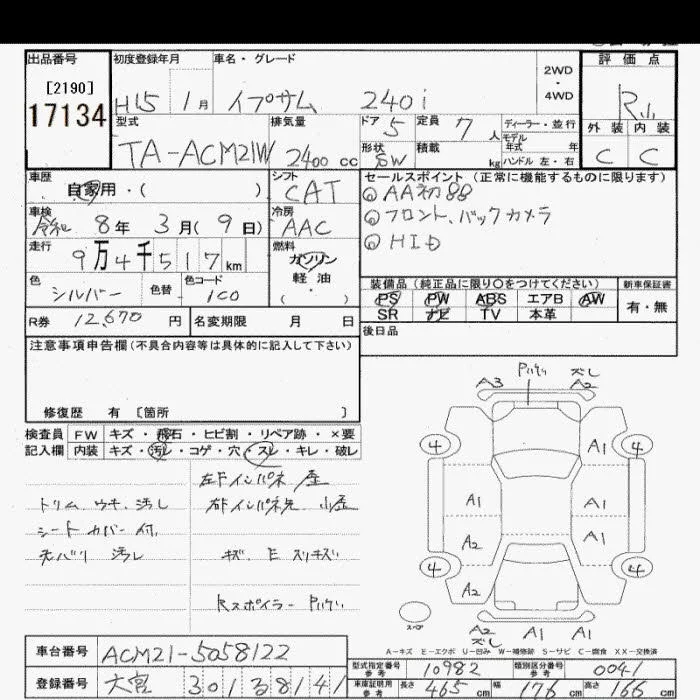 出品番号 初度登録年月 車名・グレード 2WD・4WD 評価点
[2190]
17134 H15 1月 イプサム 240i R小
型式 排気量 ドア 5 定員 7人 ディーラー・並行 外装 内装
TA-ACM21W 2400cc 形状 SW 積載 kg モデル年式 年 ハンドル 左・右 C C
車歴 シフト セールスポイント(正常に機能するものに限ります)
自家用・( ) CAT AA初出品
車検 冷房 フロント、バックカメラ
令和 8年 3月(9日) AAC HID
走行 燃料
9万4千517km ガソリン
色 色替 色コード 軽油
シルバー 1C0 ( ・ ) 装備品(純正品に限り○をつけてください) 新車保証書
R券 12,670円 名変期限 月 日 PS PW ABS エアB AW 有・無
SR ナビ TV 本革
後日品
注意事項申告欄(不具合内容等は具体的に記入して下さい)
修復歴 有 〔箇所 〕
検査員 FW キズ・飛石・ヒビ割・リペア跡・×要
記入欄 内装 キズ・汚レ・コゲ・穴・スレ・キレ・破レ
左Fインパネ 歪
トリム、ウチ、汚レ 右Fインパネ先 小歪
シートカバー付
天バリ 汚レ キズ、E スリキズ
Rスポイラー Pハゲ
Pハゲ
A3 ズレ A2
4 A1 4
A1 A1
A2 A1
4 A2 4
A2 ズレ A1 A1
スペア
A-キズ E-エクボ U-凹み W-補修跡 S-サビ C-腐食 XX-交換済
車台番号 ACM21-5058122
登録番号 大宮 301 る 8141
型式指定番号 参考 10982 類別区分番号 参考 0041
車庫証明用 参考 長さ 465cm 幅 176cm 高さ 166cm